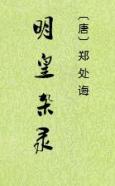 〔唐〕郑处诲
明皇杂录